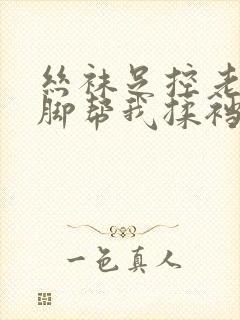 丝袜足控老
脚帮我揉裆
一色真人